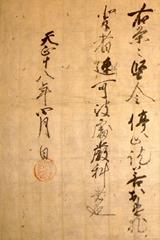 右条々堅令停止訖若於違犯
輩者速可被處嚴科者也
天正十八年四月日